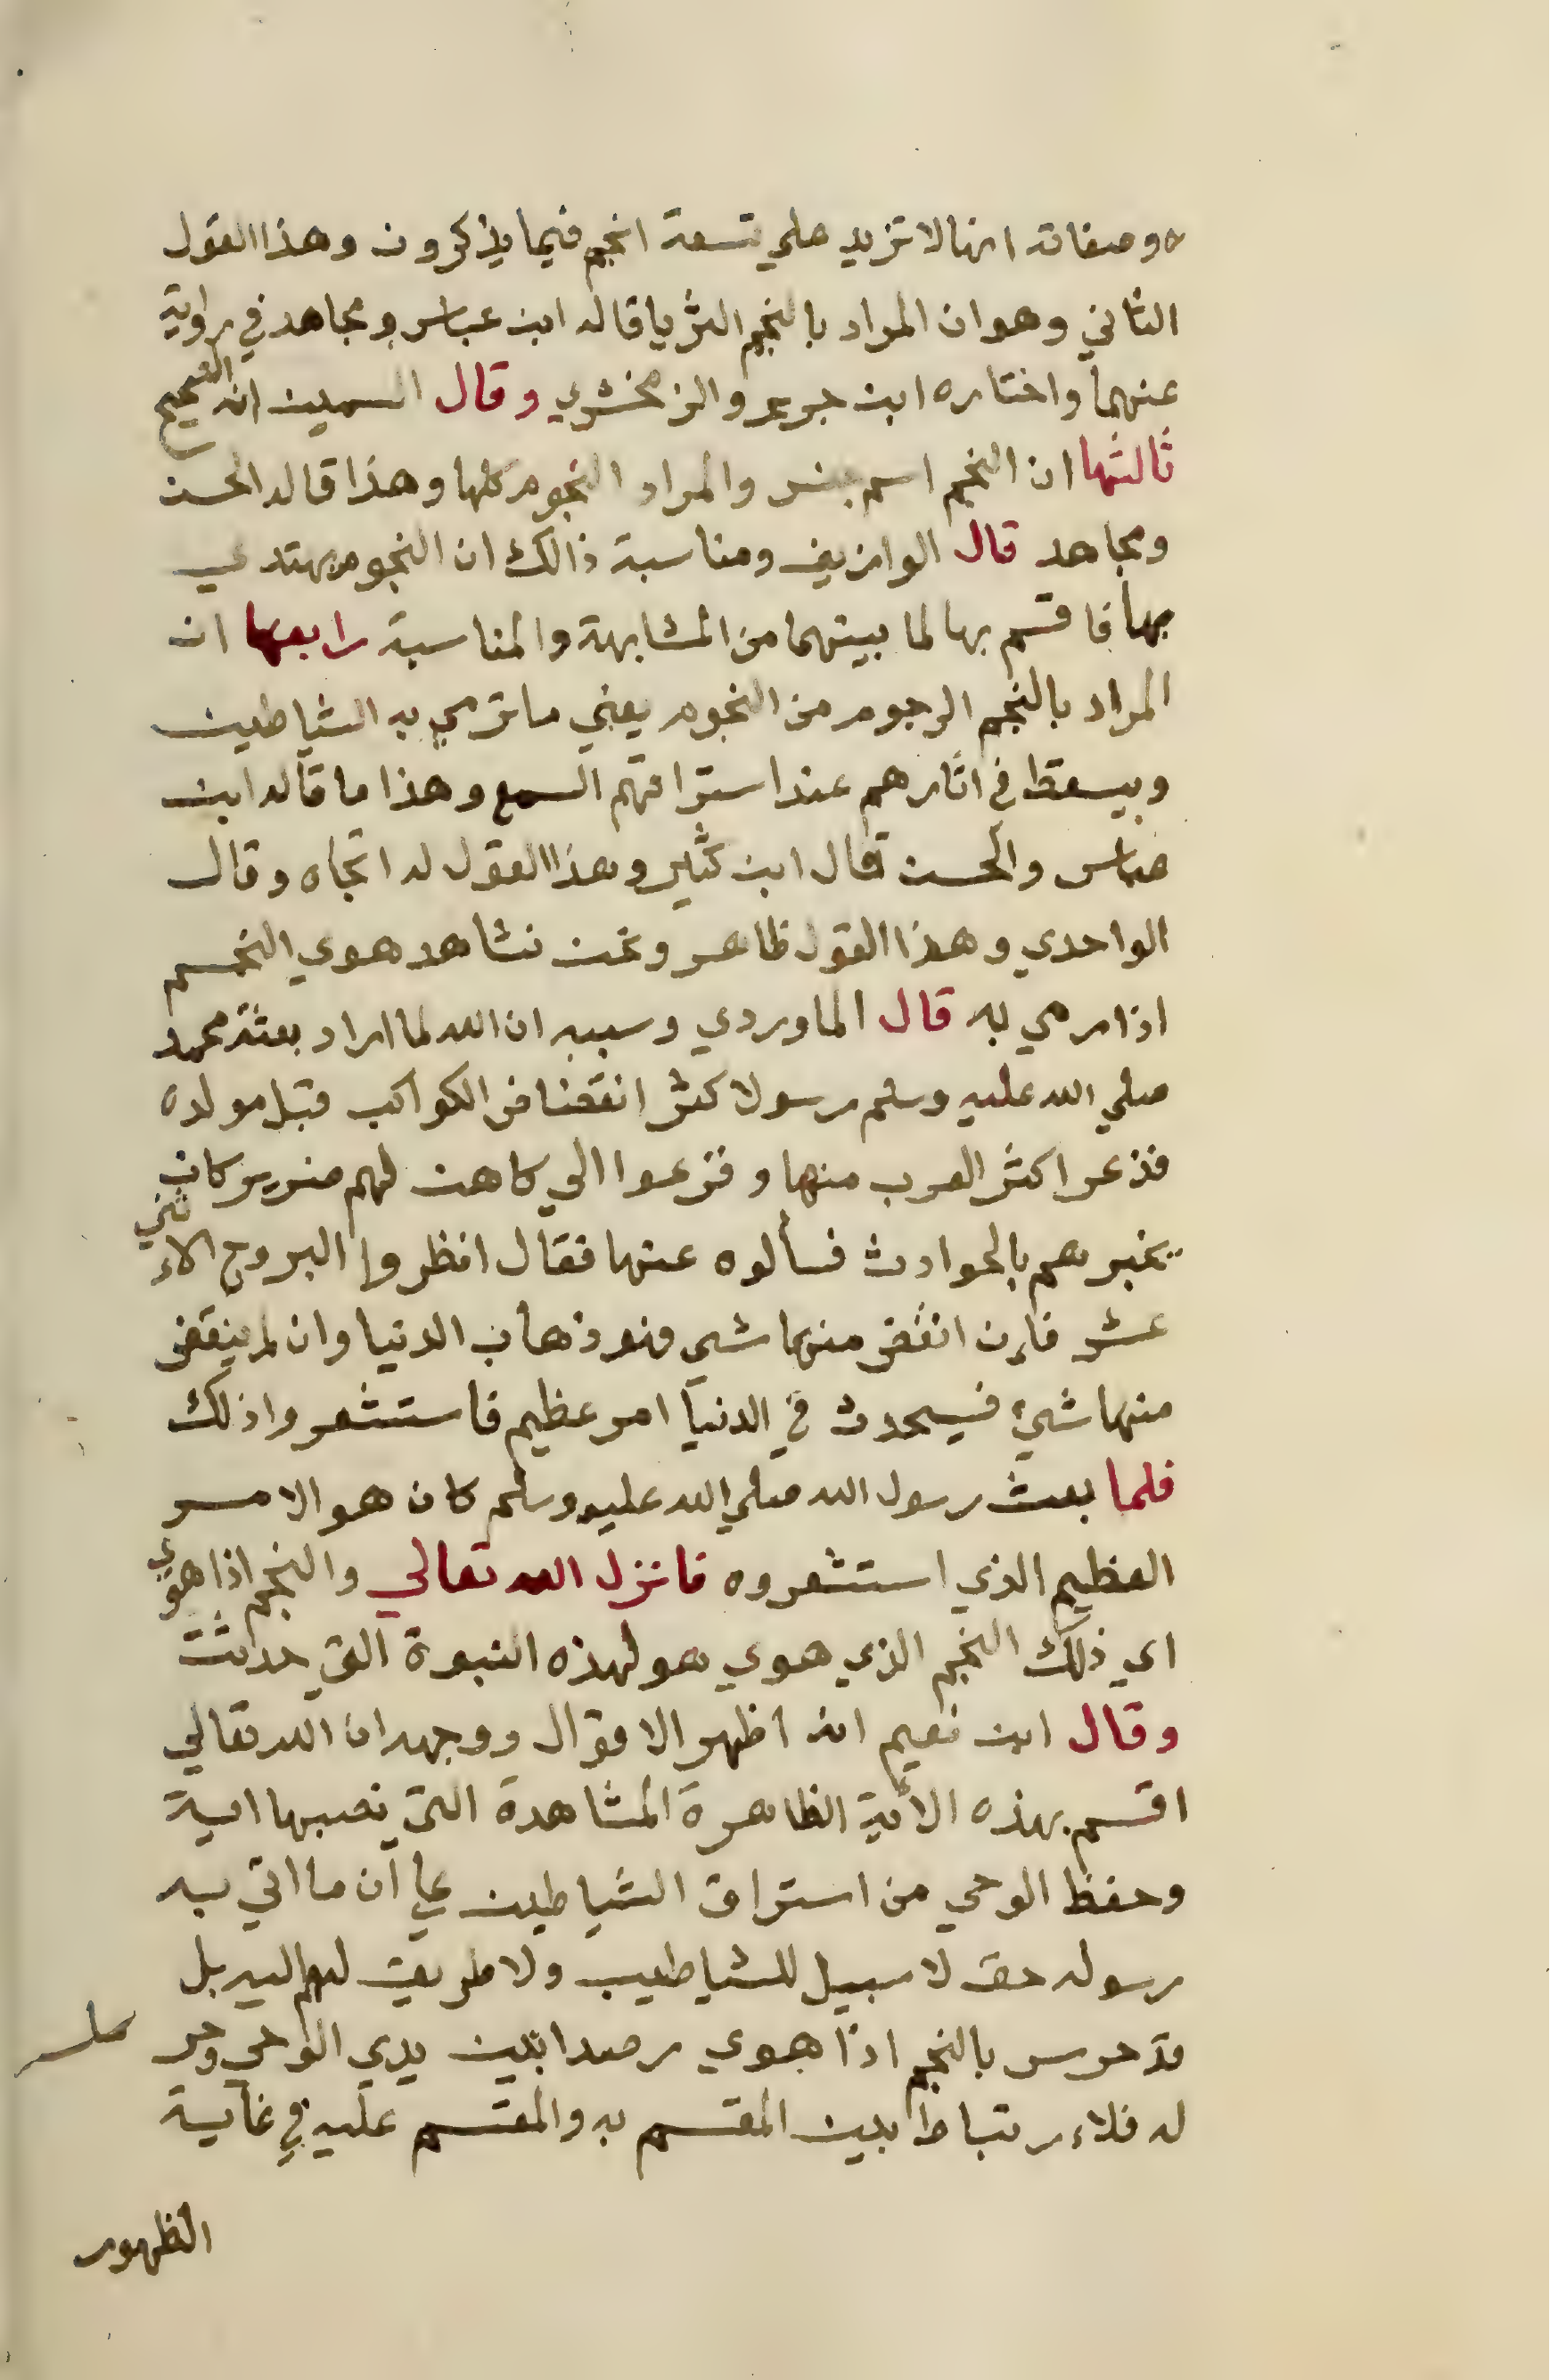 وصفاته انها لا تزيد علي تسعة انجم فيما يذكرون وهذا القول
الثاني وهو ان المراد بالنجم الثريا قاله ابن عباس ومجاهد في رواية
عنهما واختاره ابن جرير والزمخشري وقال السمين انه الصحيح
ثالثها ان النجم اسم جنس والمراد النجوم كلها وهذا قاله الحسن
ومجاهد قال الوازيف ومناسبة ذالك ان النجوم يهتدي
بها فاقسم بها لما بينهما من المشابهة والمناسبة رابعها ان
المراد بالنجم الرجوم من النجوم يعني ما ترمي به الشياطين
ويسقط في اثارهم عند استراقهم السمع وهذا ما قاله ابن
عباس والحسن قال ابن كثير وهذا القول له اتجاه وقال
الواحدي وهذا القول ظاهر ونحن نشاهد هوي النجم
اذا رمي به قال الماوردي وسببه ان الله لما اراد بعثة محمد
صلي الله عليه وسلم رسولا كثر انقضاض الكواكب قبل مولده
فذعر اكثر العرب منها وفزعوا الي كاهن لهم ضرير كان
يخبرهم بالحوادث فسألوه عنها فقال انظروا البروج الاثني
عشر فإن انقض منها شي فهو ذهاب الدنيا وان لم ينقض
منها شيء فسيحدث في الدنيا امر عظيم فاستشعروا ذلك
فلما بعث رسول الله صلي الله عليه وسلم كان هو الامر
العظيم الذي استشعروه فانزل الله تعالي والنجم اذا هوي
اي ذلك النجم الذي هوي هو لهذه النبوة التي حدثت
وقال ابن نعيم انه اظهر الاقوال ووجهه ان الله تعالي
اقسم بهذه الأية الظاهرة المشاهدة التي نصبها اية
وحفظ الوحي من استراق الشياطين علي أن ما اتي به
رسوله حق لا سبيل للشياطيب ولا طريق لهم اليه بل
قد حرس بالنجم اذا هوي رصدا بين يدي الوحي وحر
له فلاء رتباط بين المقسم به والمقسم عليه في غاية
الظهور